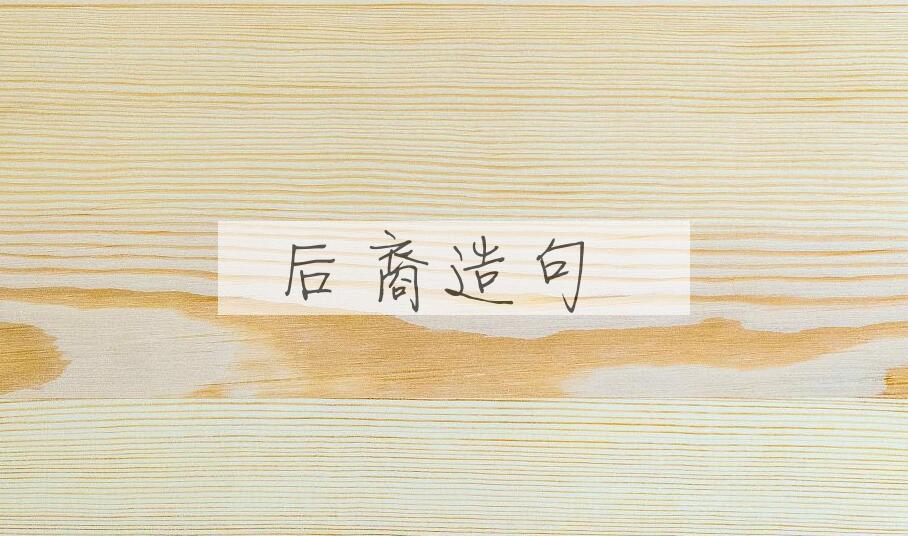 后裔造句